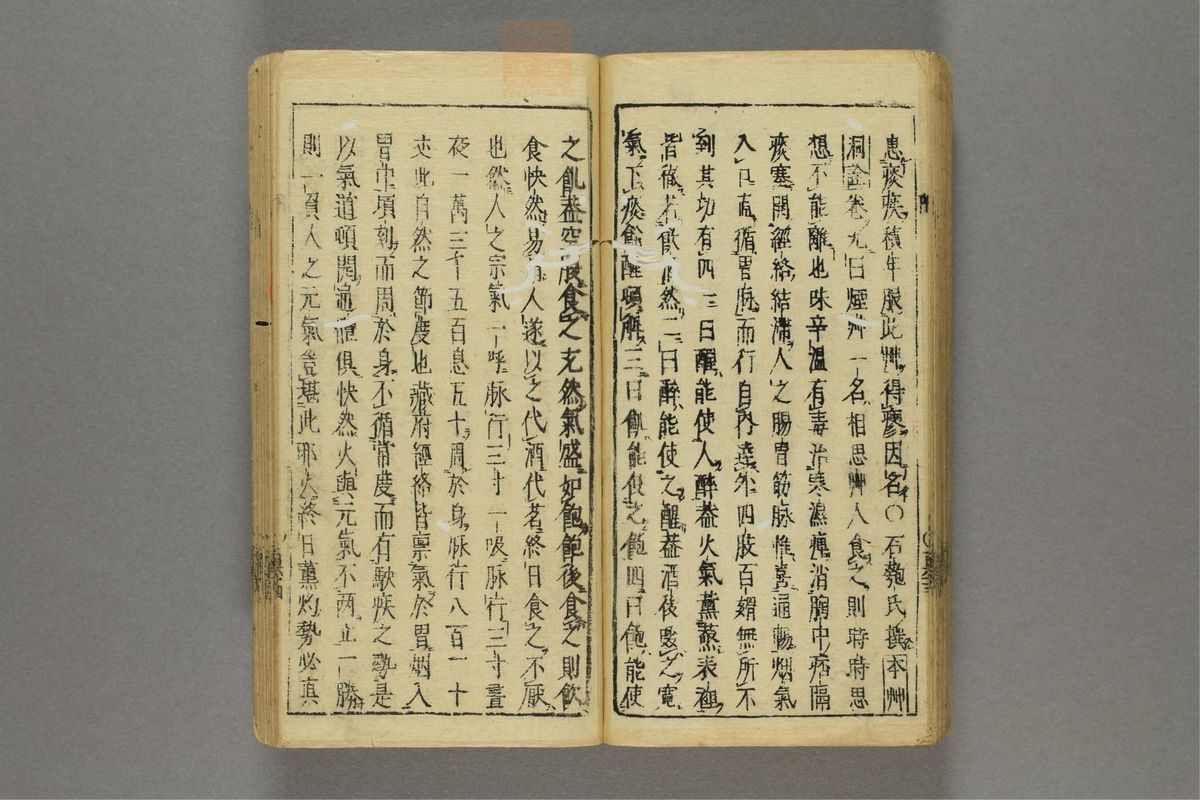 患痰疾積年服此艸得瘳因名○石匏氏撰本艸
洞詮卷九曰煙艸一名相思艸人食之則時時思
想不能離也味辛溫有毒治寒濕痺消胸中痞隔
痰塞開經絡結滯人之腸胃筋脉惟喜通暢烟氣
入口直循胃脉而行自內達外四肢百骸無所不
到其功有四一曰醒能使人醉蓋火氣薰蒸表裡
皆徹若飲酒然二曰醉能使之醒蓋酒後啜之寬
氣下痰餘酲頓解三曰飢能使之飽四曰飽能使
之飢蓋空腹食之充然氣盛如飽飽後食之則飲
食快然易消人遂以之代酒代茗終日食之不厭
也然人之宗氣一呼脉行三寸一吸脉行三寸晝
夜一萬三千五百息五十周於身脉行八百一十
丈此自然之節度也藏府經絡皆稟氣於胃烟入
胃中頃刻而周於身不循常度而有駛疾之勢是
以氣道頓開通體俱快然火與元氣不兩立一勝
則一負人之元氣豈堪此邪火終日薰灼勢必真